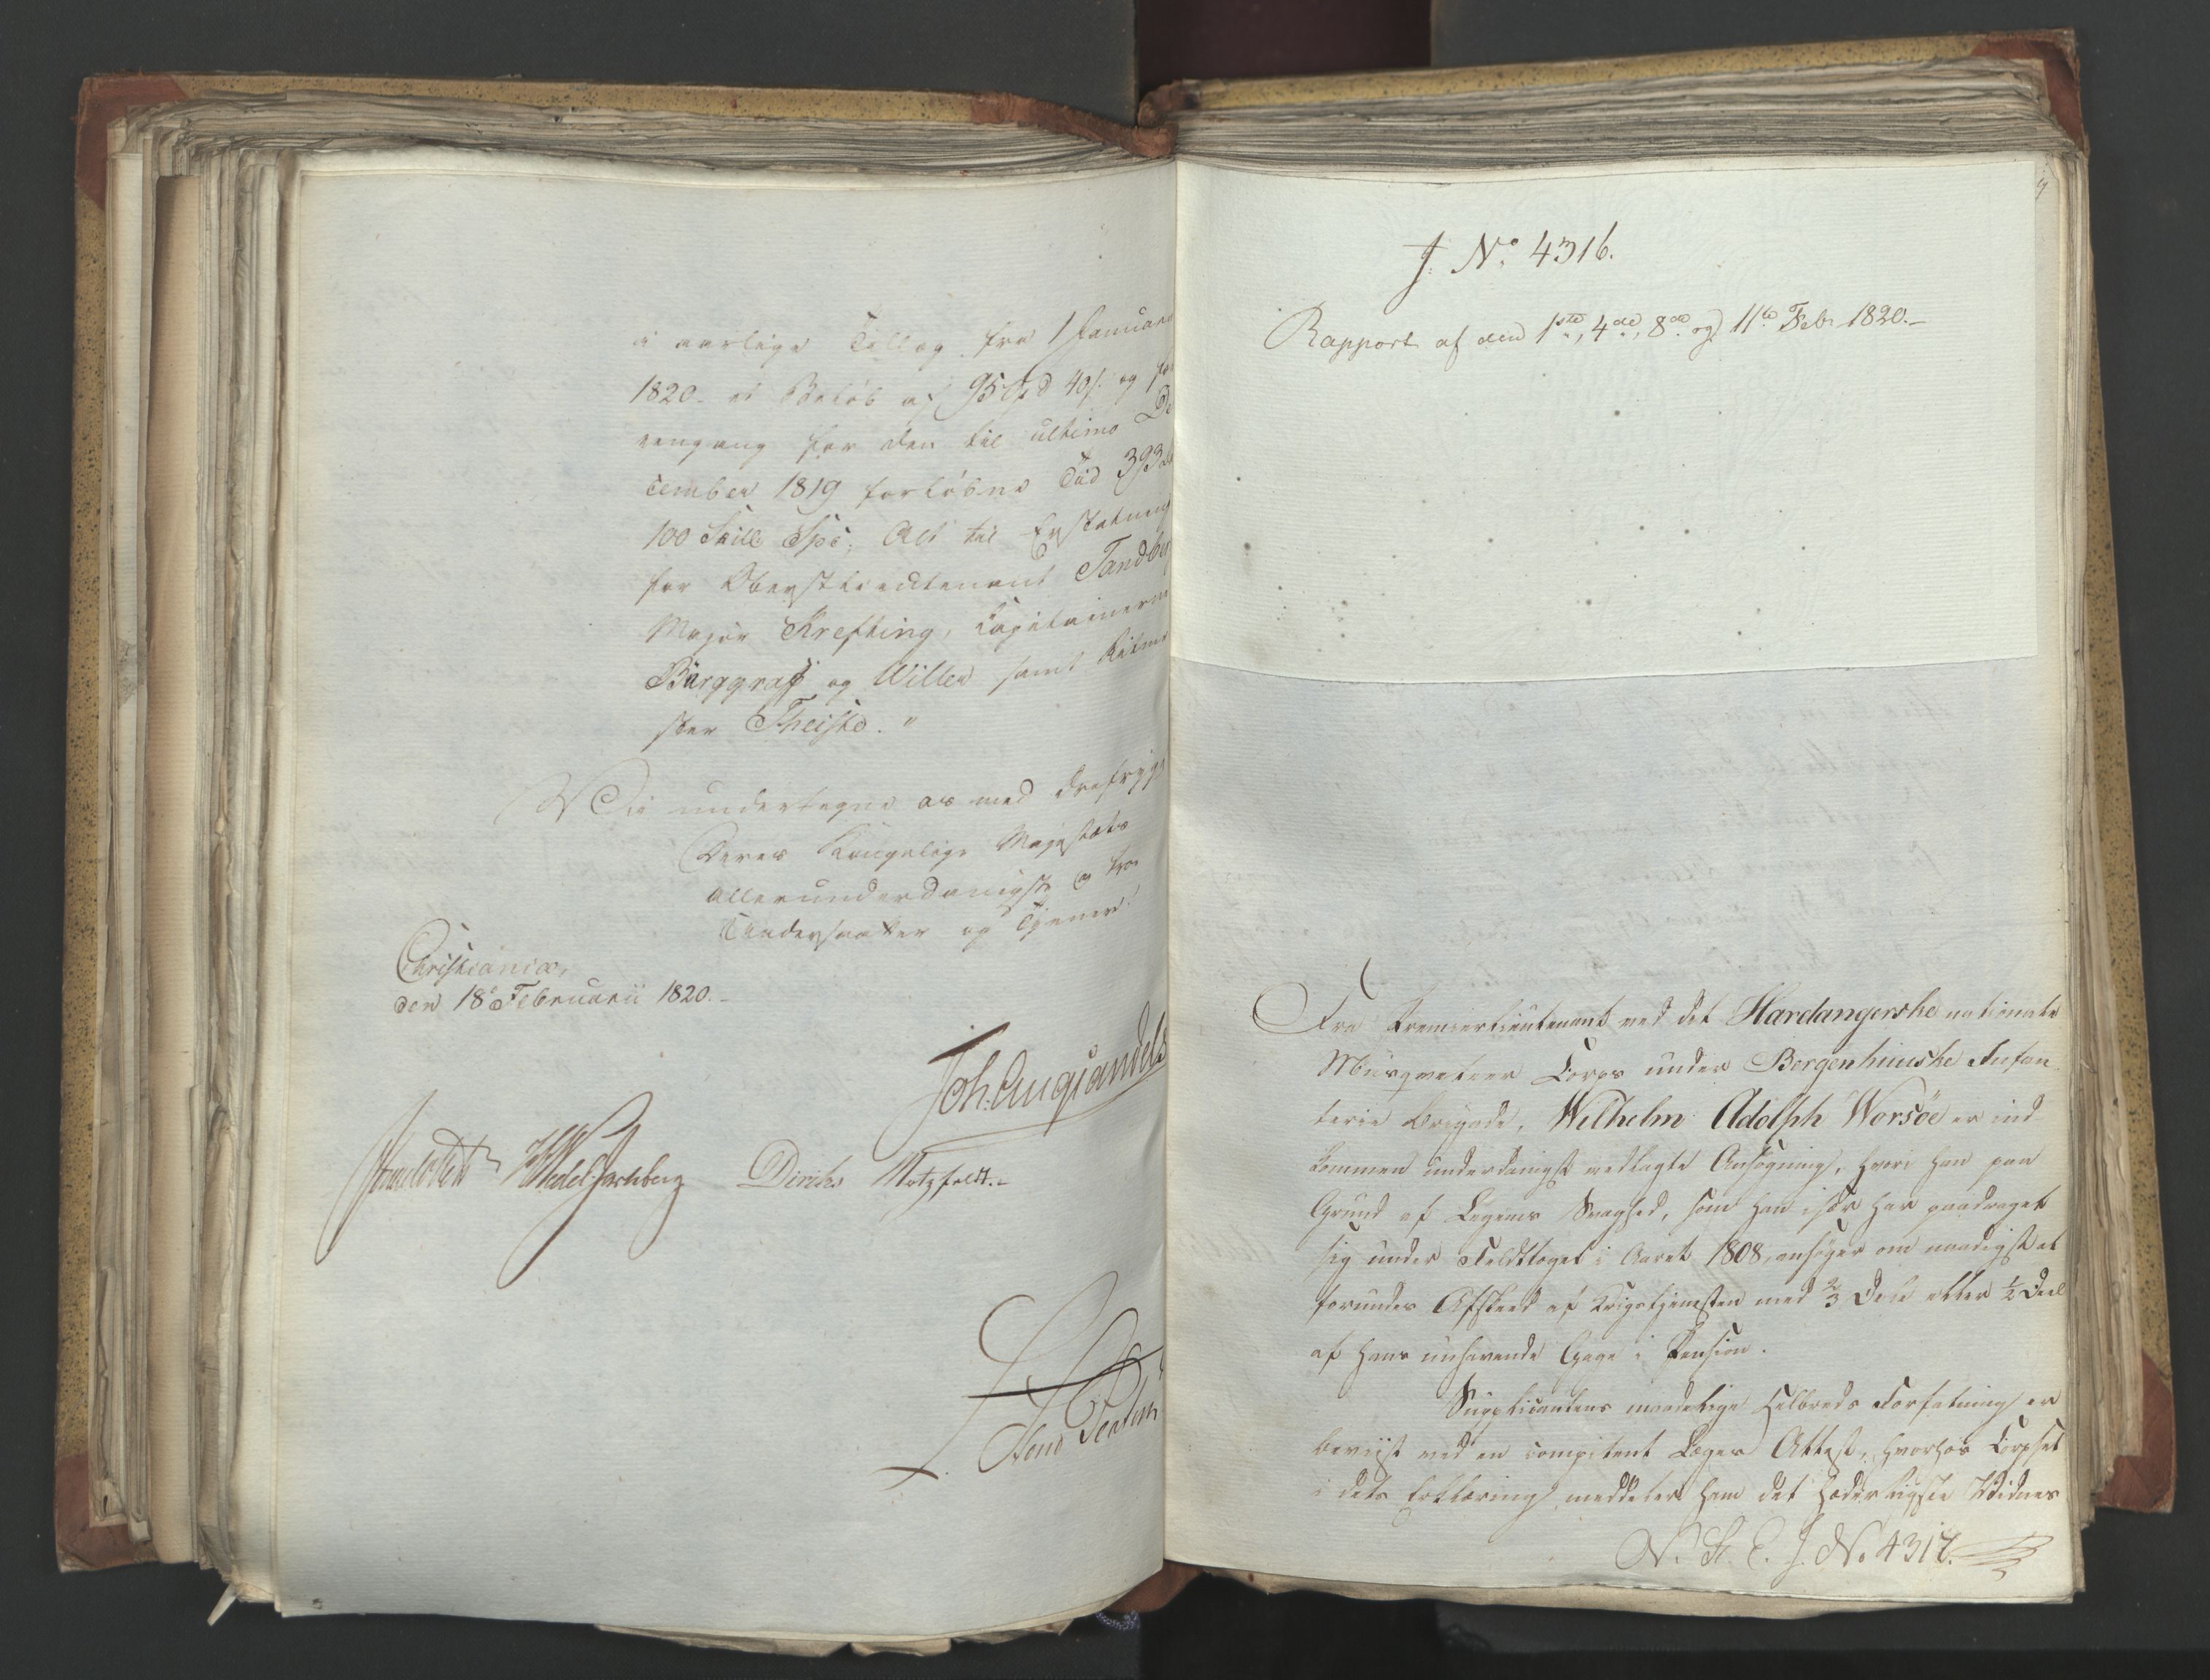 i aarlige Tillæg fra 1 Januar
1820. et Beløb af 95 Spd 40 s. og for
eengang for den til ultimo De
cember 1819 forløbne Tid 393
100 Skill Spc; Alt til Erstatning
for Oberstlieutenant Tandberg
Major Krefting, Capitainerne
Burggraff og Wille samt Ritme
ster Theiste."
Vi undertegne os med dybeste
Deres Kongelige Majestæts
allerunderdanigste og troe
Undersaatter og Tjenere.
Christiania,
den 18 Februarii 1820.
Joh. Aug. Sandels
Wedel Jarlsberg Diriks Motzfeldt.
J. No. 4316.
Rapport af den 1ste, 4de, 8de og 11te Febr 1820.
Fra Premierlieutenant ved det Hardangerske nationale
Musqveteer Corps under Bergenhuuske Infan
terie Brigade, Wilhelm Adolph Worsöe er ind
kommen underdanigst vedlagte Ansøgning, hvori han paa
Grund af Legems Svaghed, som han især har paadraget
sig under Feldttoget i Aaret 1808, ansøger om naadigst at
forundes Afskeed af Krigstjenesten med 2/3 Dele eller 1/2 Deel
af hans nuhavende Gage i Pension.
Supplicantens maadelige Helbreds Forfatning er
beviist ved en competent Læges Attest, hvorhos Corpset
i dets Erklæring meddeler ham det hæderligste Vidnes
N. St. C. J. No. 4317.